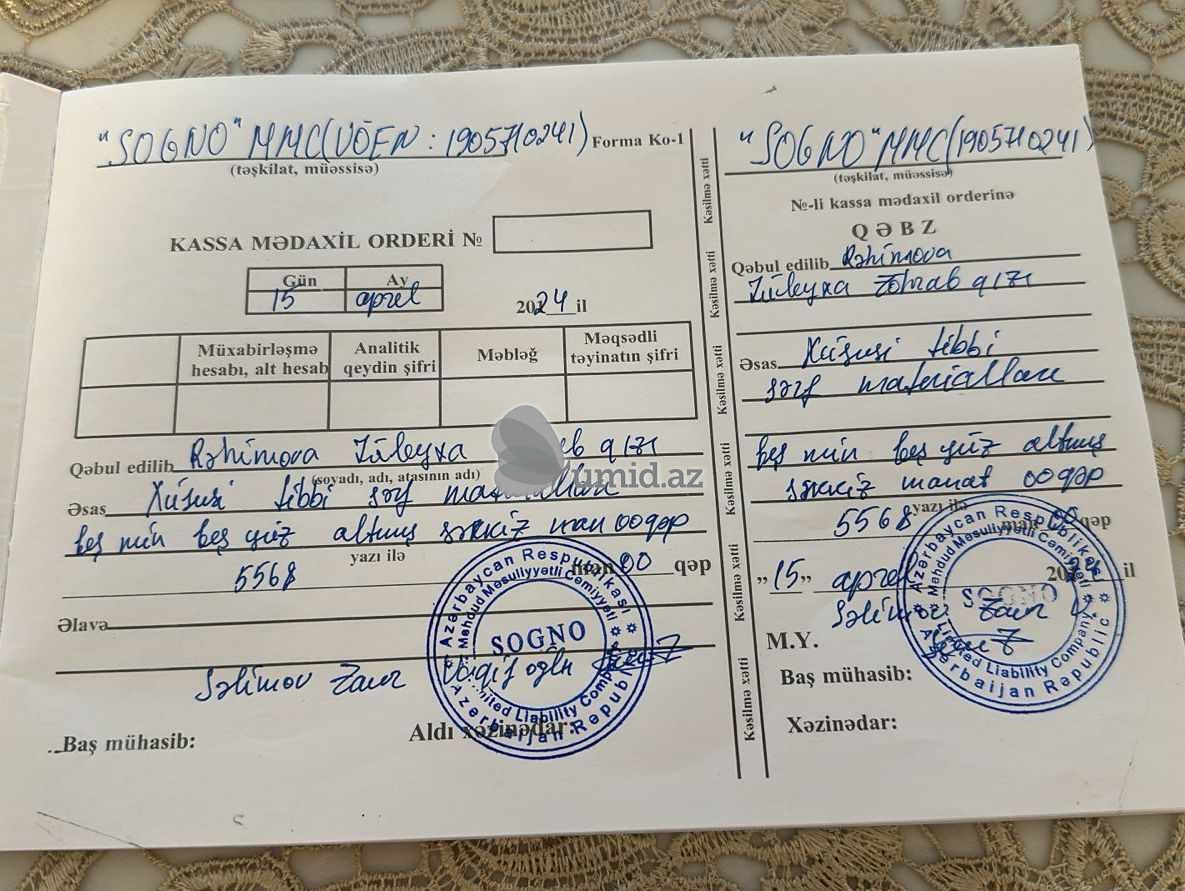 "SOGNO" MMC (VÖEN: 1905710241) Forma Ko-1
(təşkilat, müəssisə)
KASSA MƏDAXİL ORDERİ №
Gün Ay
15 aprel 2024 il
Müxabirləşmə hesabı, alt hesab
Analitik qeydin şifri
Məbləğ
Məqsədli təyinatın şifri
Qəbul edilib Rəhimova Züleyxa qızı
(soyadı, adı, atasının adı)
Əsas Xüsusi tibbi sərf materialları
beş min beş yüz altmış səkkiz man 00 qəp
yazı ilə
5568 man 00 qəp
Əlavə
Səlimov Zaur Vaqif oğlu
Baş mühasib: Aldı xəzinədar:
Azərbaycan Respublikası
Məhdud Məsuliyyətli Cəmiyyəti
SOGNO
Limited Liability Company
Azerbaijan Republic
umid.az
Kəsilmə xətti
Kəsilmə xətti
Kəsilmə xətti
Kəsilmə xətti
Kəsilmə xətti
Kəsilmə xətti
"SOGNO" MMC (1905710241)
(təşkilat, müəssisə)
№-li kassa mədaxil orderinə
QƏBZ
Qəbul edilib Rəhimova
Züleyxa Zöhrab qızı
Əsas Xüsusi tibbi
sərf materialları
beş min beş yüz altmış
səkkiz manat 00 qəp
yazı ilə
5568 man 00 qəp
"15" aprel 2024 il
Səlimov Zaur V.
M.Y.
Baş mühasib:
Xəzinədar:
Azərbaycan Respublikası
Məhdud Məsuliyyətli Cəmiyyəti
SOGNO
Limited Liability Company
Azerbaijan Republic